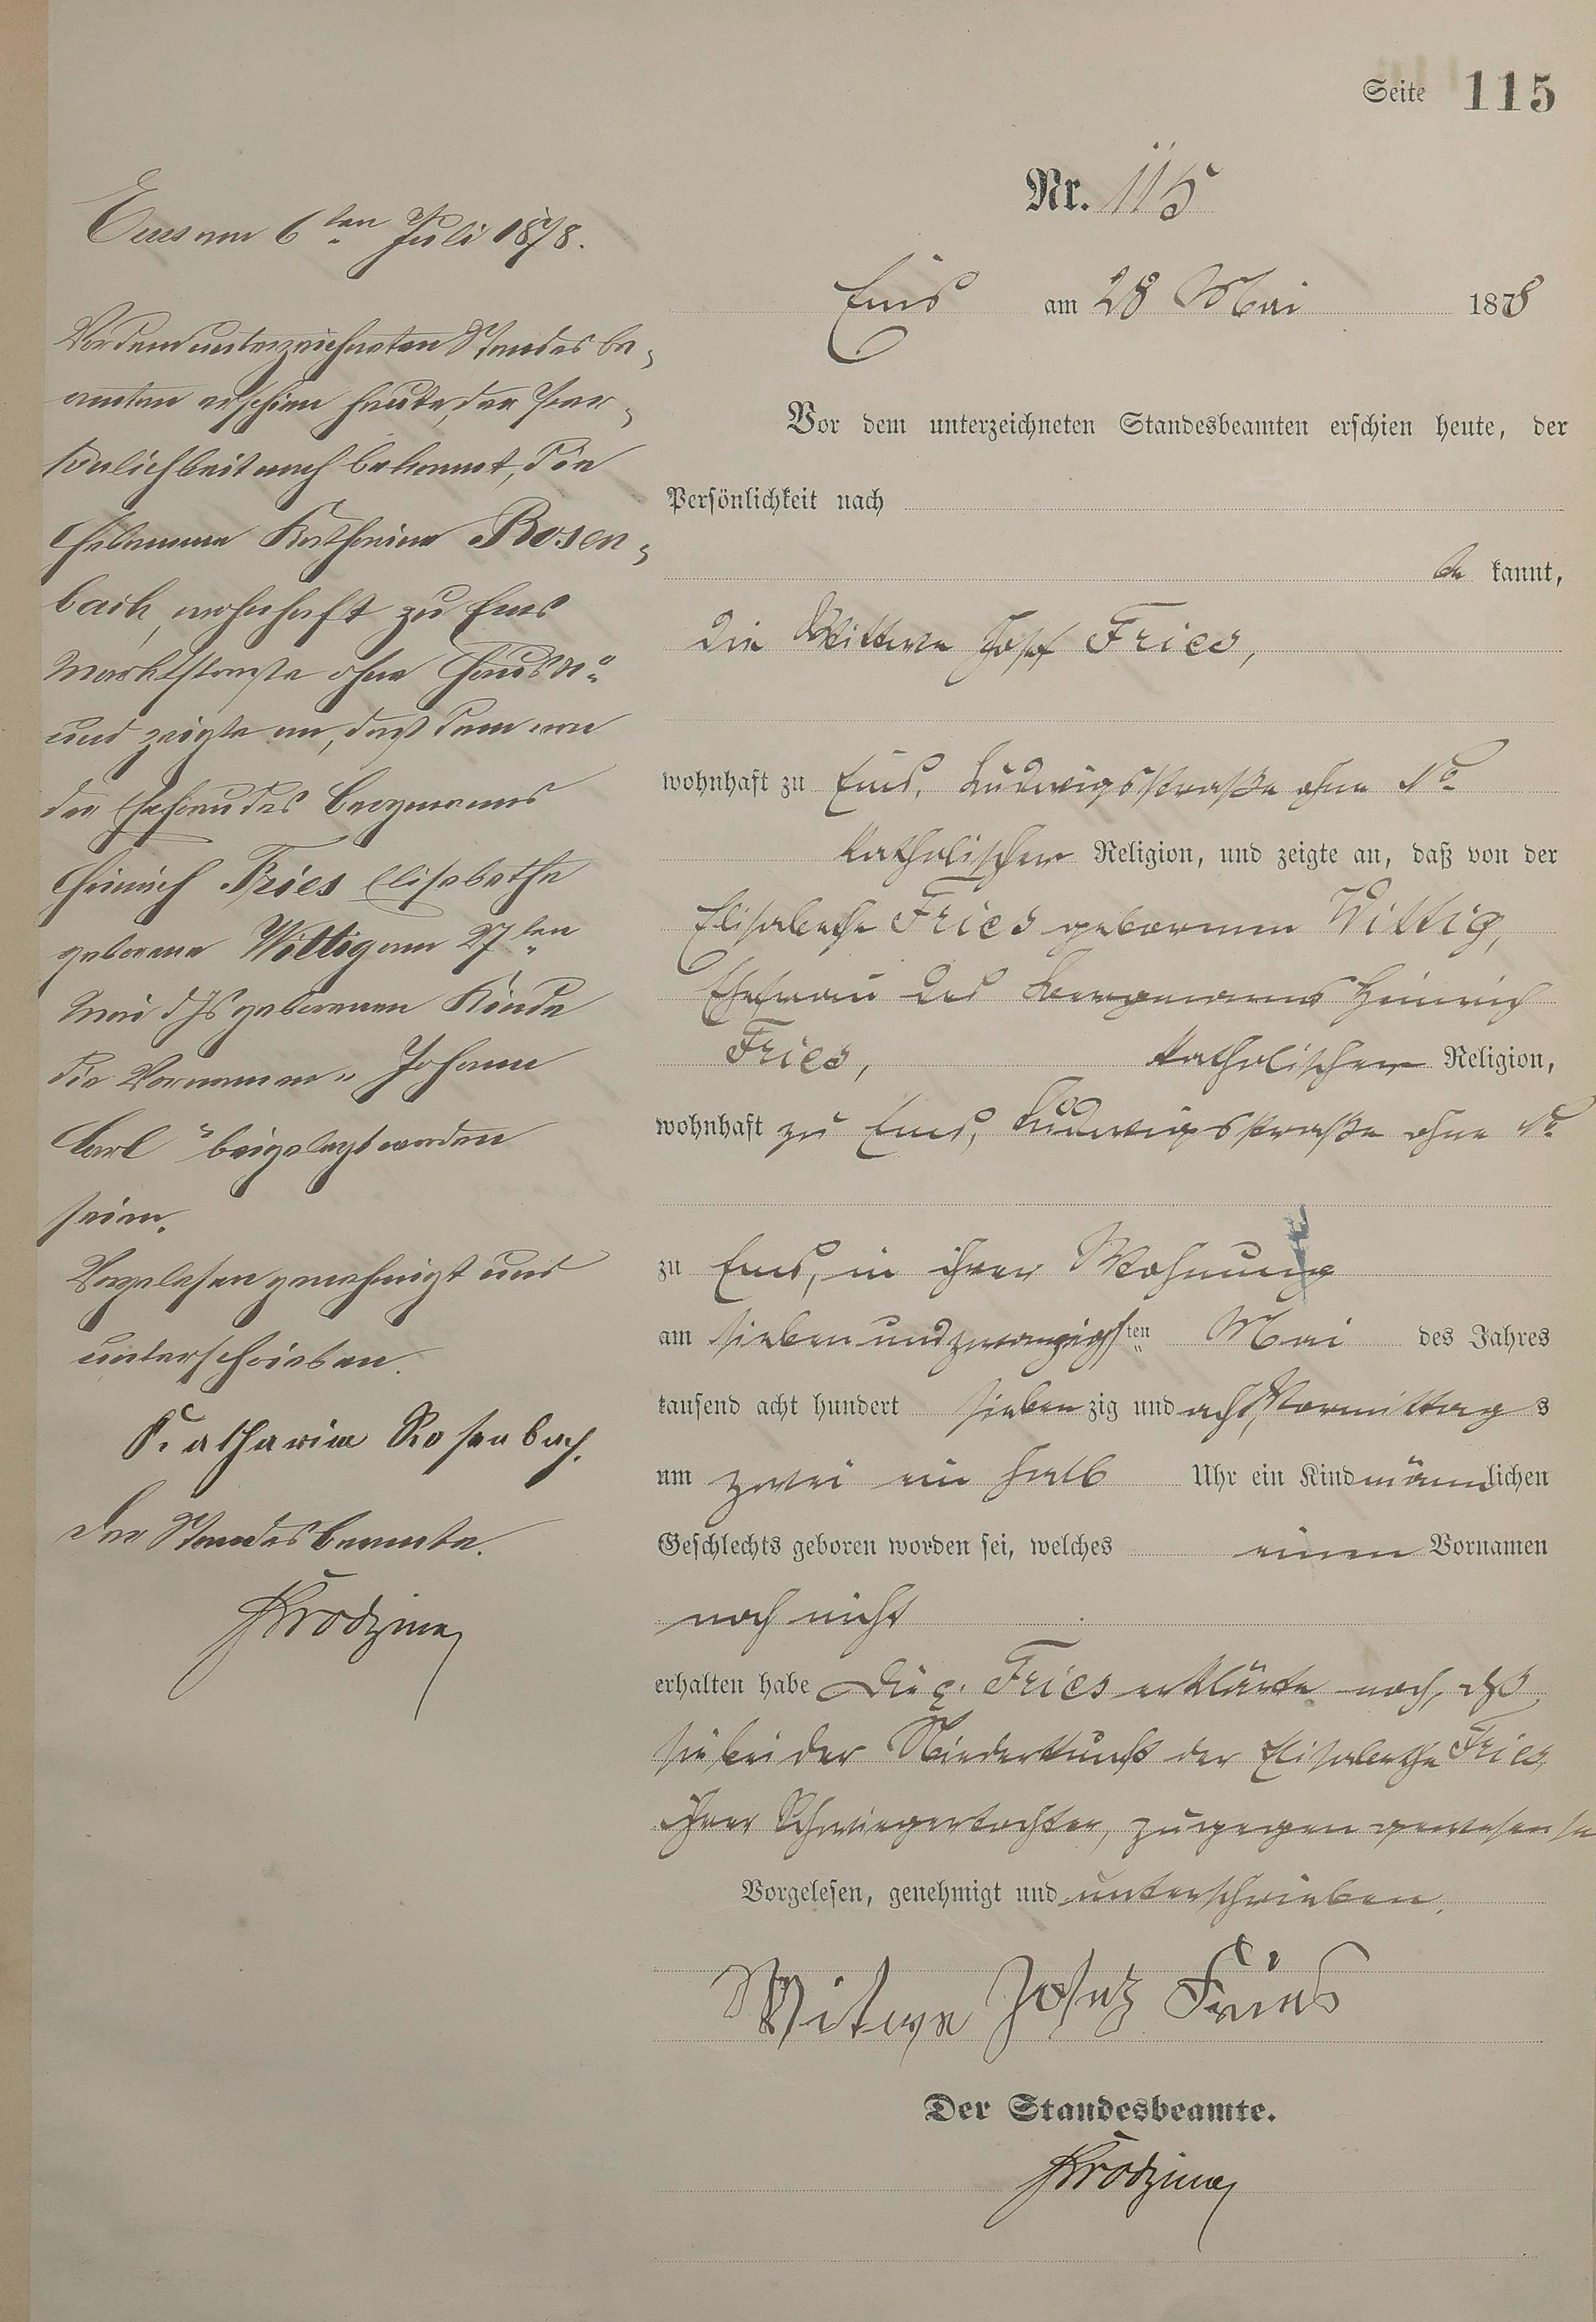 Seite 115
Nr. 115
Ems am 28 Mai 1878
Vor dem unterzeichneten Standesbeamten erschien heute, der
Persönlichkeit nach
be kannt,
die Wittwe Josef Fries,
wohnhaft zu Ems, Ludwigsstraße ohne No
katholischer Religion, und zeigte an, daß von der
Elisabethe Fries geborenen Wittig,
Ehefrau des Bergmanns Heinrich
Fries, katholischer Religion,
wohnhaft zu Ems, Ludwigsstraße ohne No
zu Ems, in ihrer Wohnung
am sieben und zwanzigsten Mai des Jahres
tausend acht hundert sieben zig und acht, Vormittag s
um zwei ein halb Uhr ein Kind männlichen
Geschlechts geboren worden sei, welches einen Vornamen
noch nicht
erhalten habe Die Fries erklärte noch, daß
sie bei der Niederkunft der Elisabethe Fries,
ihrer Schwiegertochter, zugegen gewesen sei
Vorgelesen, genehmigt und unterschrieben.
Witwe Josef Fries
Der Standesbeamte.
Ems am 6ten Juli 1878.
Vor dem unterzeichneten Standesbe-
amten erschien heute, der Per-
sönlichkeit nach bekannt, die
Hebamme Katharina Rosen-
bach, wohnhaft zu Ems
Marktstraße ohne Haus No
und zeigte an, daß dem von
der Ehefrau des Bergmanns
Heinrich Fries Elisabethe
geborene Wittig am 27ten
Mai d Js geborenen Kinde
die Vornamen „Johann
Carl“ beigelegt worden
seien.
Vorgelesen genehmigt und
unterschrieben.
Katharina Rosenbach.
Der Standesbeamte.